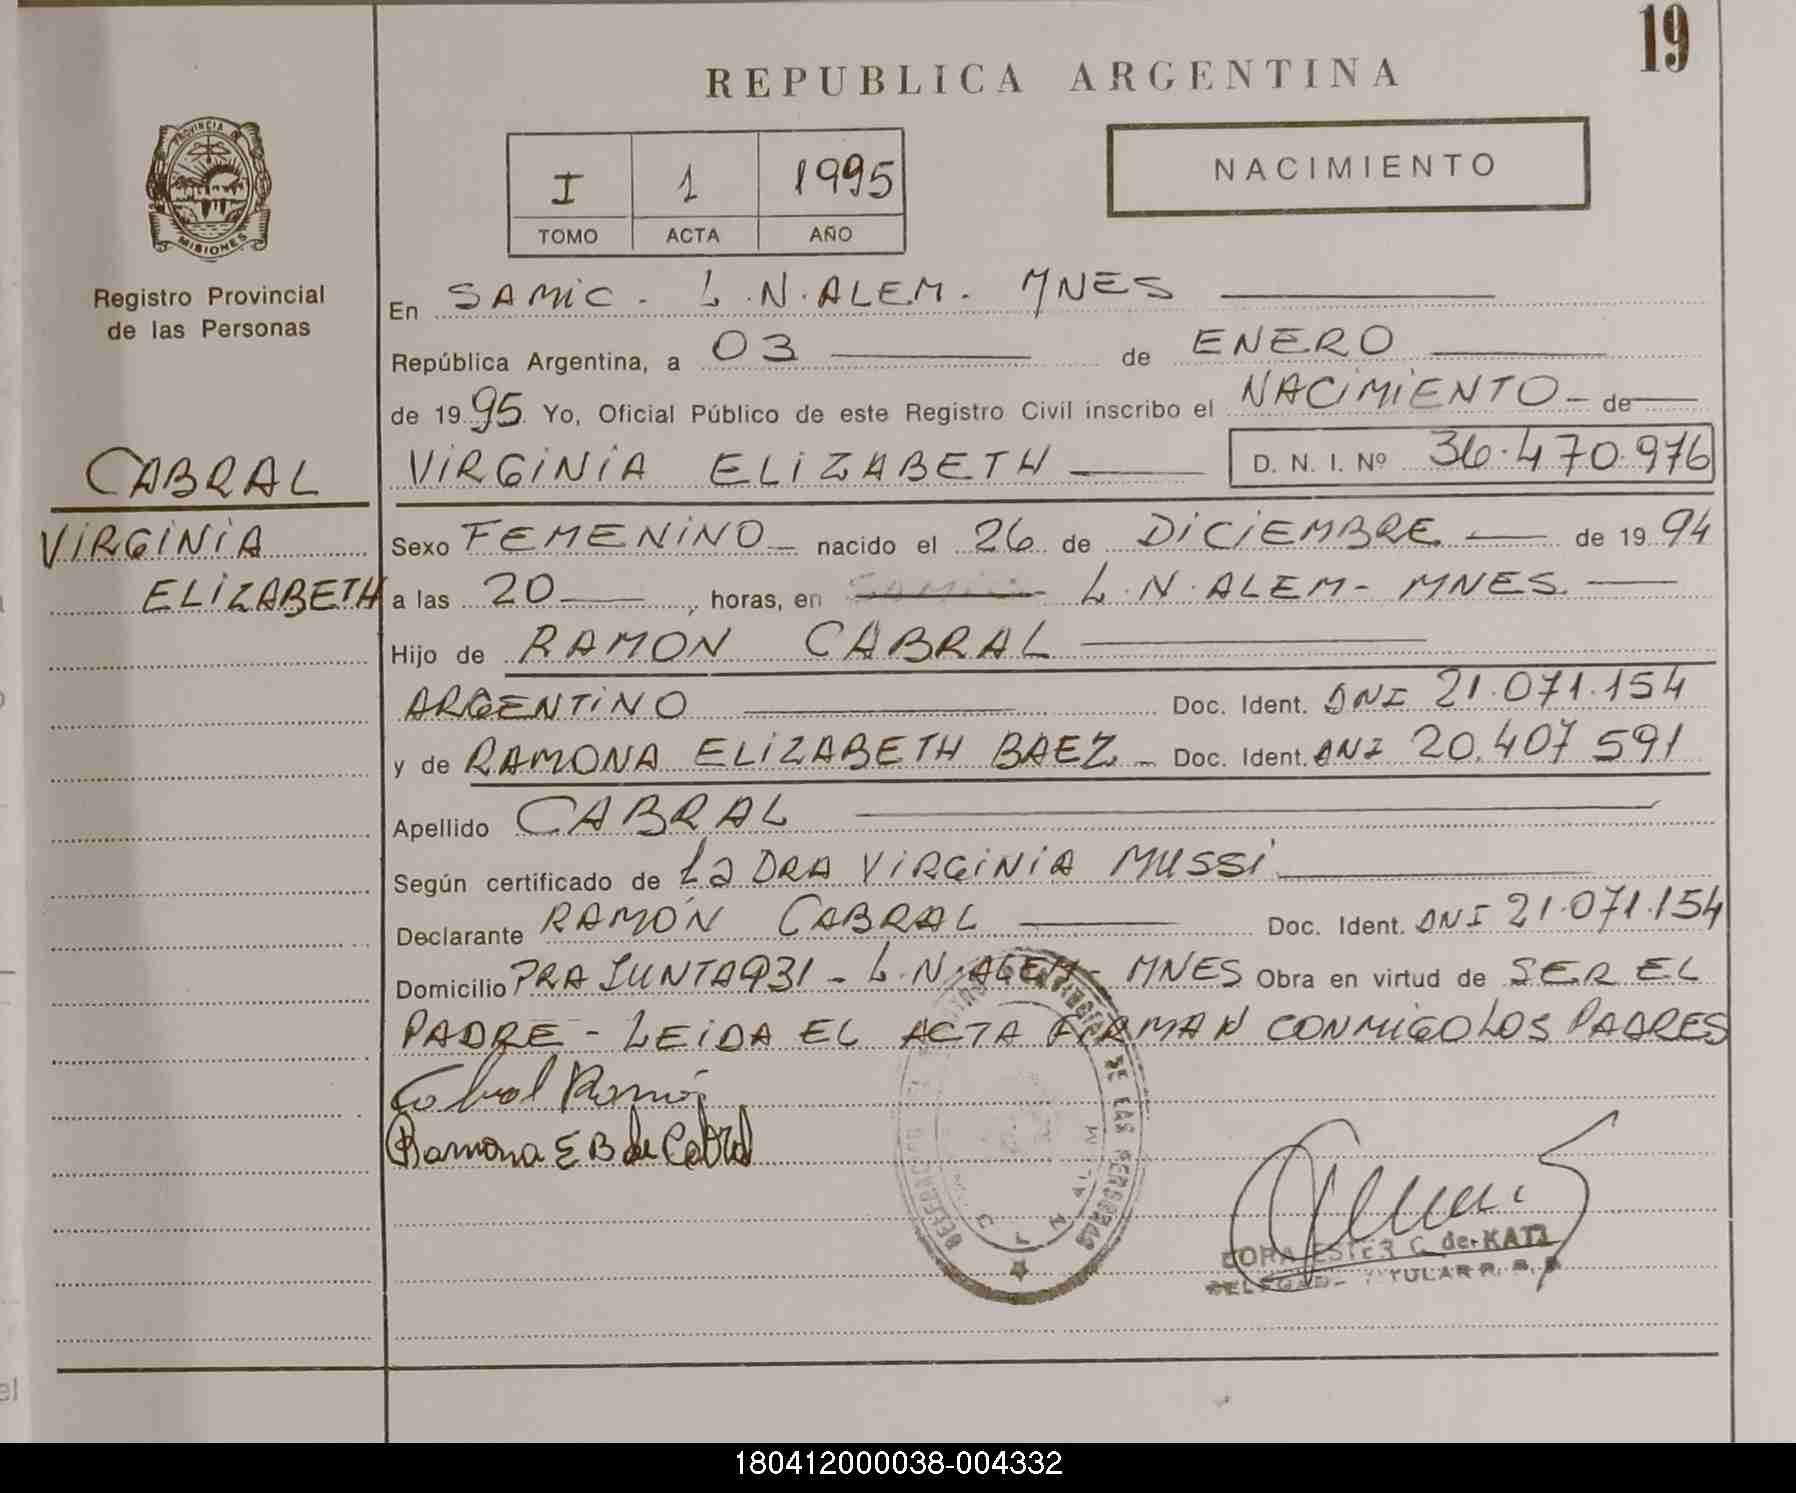 19
REPUBLICA ARGENTINA
PROVINCIA DE
MISIONES
Registro Provincial
de las Personas
I 1 1995
TOMO ACTA AÑO
NACIMIENTO
En SAMIC - L.N. ALEM - MNES
República Argentina, a 03 de ENERO
de 1995 Yo, Oficial Público de este Registro Civil inscribo el NACIMIENTO - de
CABRAL
VIRGINIA
ELIZABETH
VIRGINIA ELIZABETH D. N. I. Nº 36.470.976
Sexo FEMENINO nacido el 26 de DICIEMBRE de 1994
a las 20 horas, en L.N. ALEM - MNES
Hijo de RAMÓN CABRAL
ARGENTINO Doc. Ident. DNI 21.071.154
y de RAMONA ELIZABETH BAEZ - Doc. Ident. DNI 20.407.591
Apellido CABRAL
Según certificado de La DRA VIRGINIA MUSSI
Declarante RAMÓN CABRAL Doc. Ident. DNI 21.071.154
Domicilio PRA JUNTA 931 - L.N. ALEM - MNES Obra en virtud de SER EL
PADRE - LEIDA EL ACTA FIRMAN CONMIGO LOS PADRES
Cabral Ramón
Ramona E B de Cabral
DE LAS PERSONAS
C. de KATZ
TITULAR R. P. P.
180412000038-004332